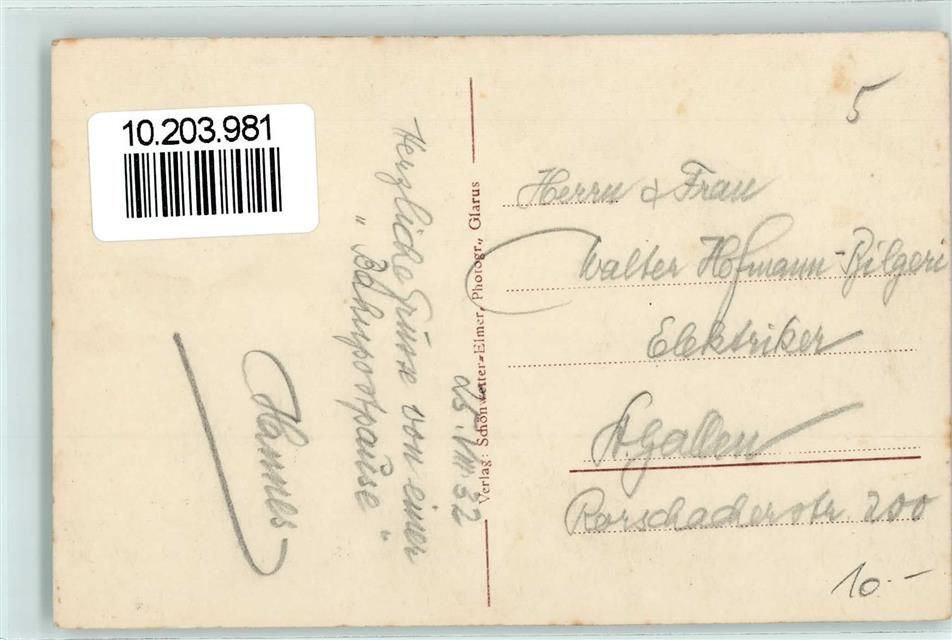 10.203.981
25.VIII 32
Herzliche Grüsse von einer
„Bahnpostpause"
Hannes
Verlag: Schönwetter-Elmer, Photogr., Glarus
5
Herrn & Frau
Walter Hofmann-Bilgeri
Elektriker
St. Gallen
Rorschacherstr 200
10.-